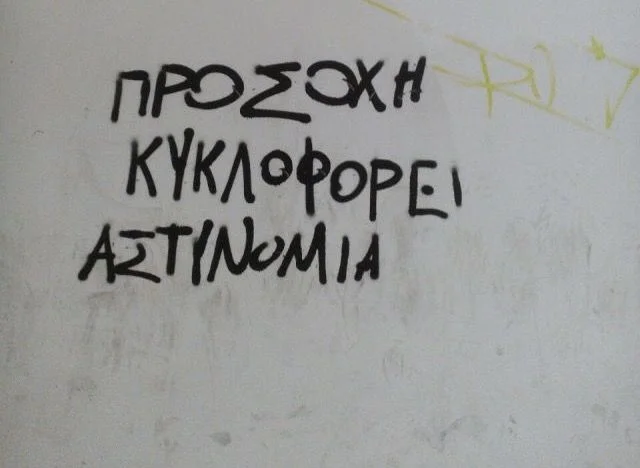 ΠΡΟΣΟΧΗ
ΚΥΚΛΟΦΟΡΕΙ
ΑΣΤΥΝΟΜΙΑ